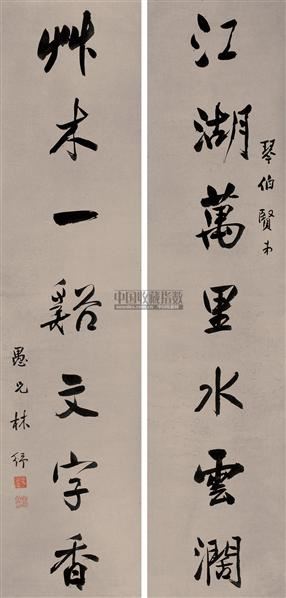 江湖萬里水雲濶
琴伯賢弟
艸木一谿文字香
愚兄林紓
中国收藏指数